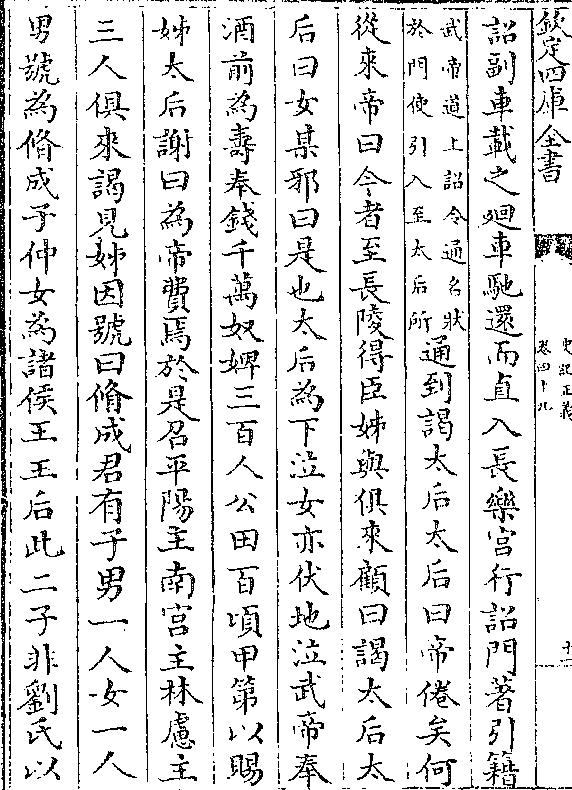 欽定四庫全書
史記正義
卷四十九
十一
詔副車載之廻車馳還而直入長樂宮行詔門著引籍
武帝道上詔令通名狀
於門使引入至太后所
通到謁太后太后曰帝倦矣何
從來帝曰今者至長陵得臣姊與俱來顧曰謁太后太
后曰女某邪曰是也太后為下泣女亦伏地泣武帝奉
酒前為壽奉錢千萬奴婢三百人公田百頃甲第以賜
姊太后謝曰為帝費焉於是召平陽主南宮主林慮主
三人俱來謁見姊因號曰脩成君有子男一人女一人
男號為脩成子仲女為諸侯王王后此二子非劉氏以